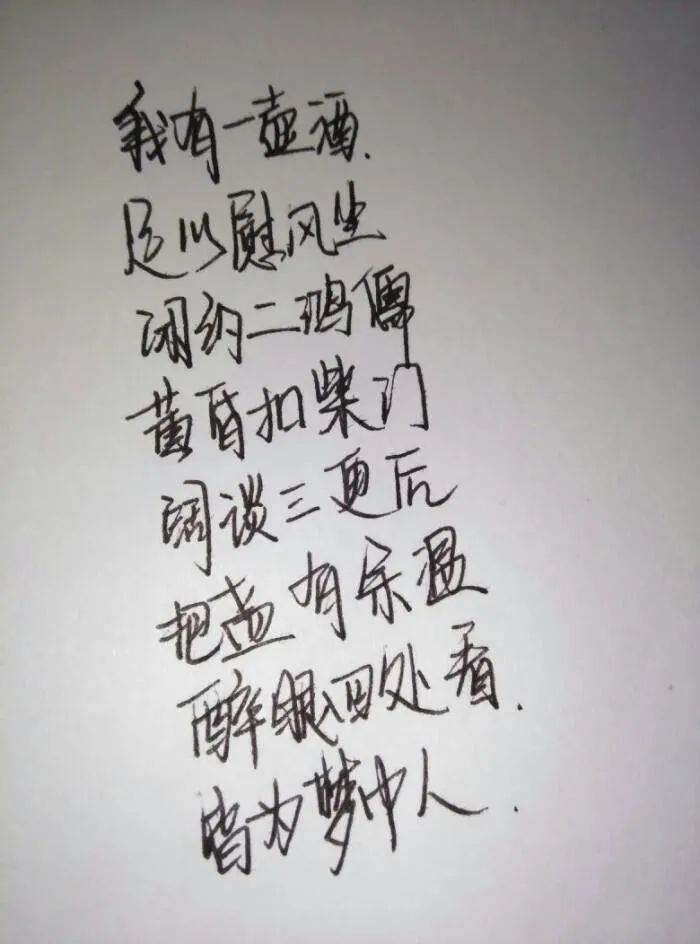 我有一壶酒、
足以慰风尘
闲约二鸿儒
黄昏扣柴门
阔谈三更后
把盏有余温
醉眼回处看.
皆为梦中人.